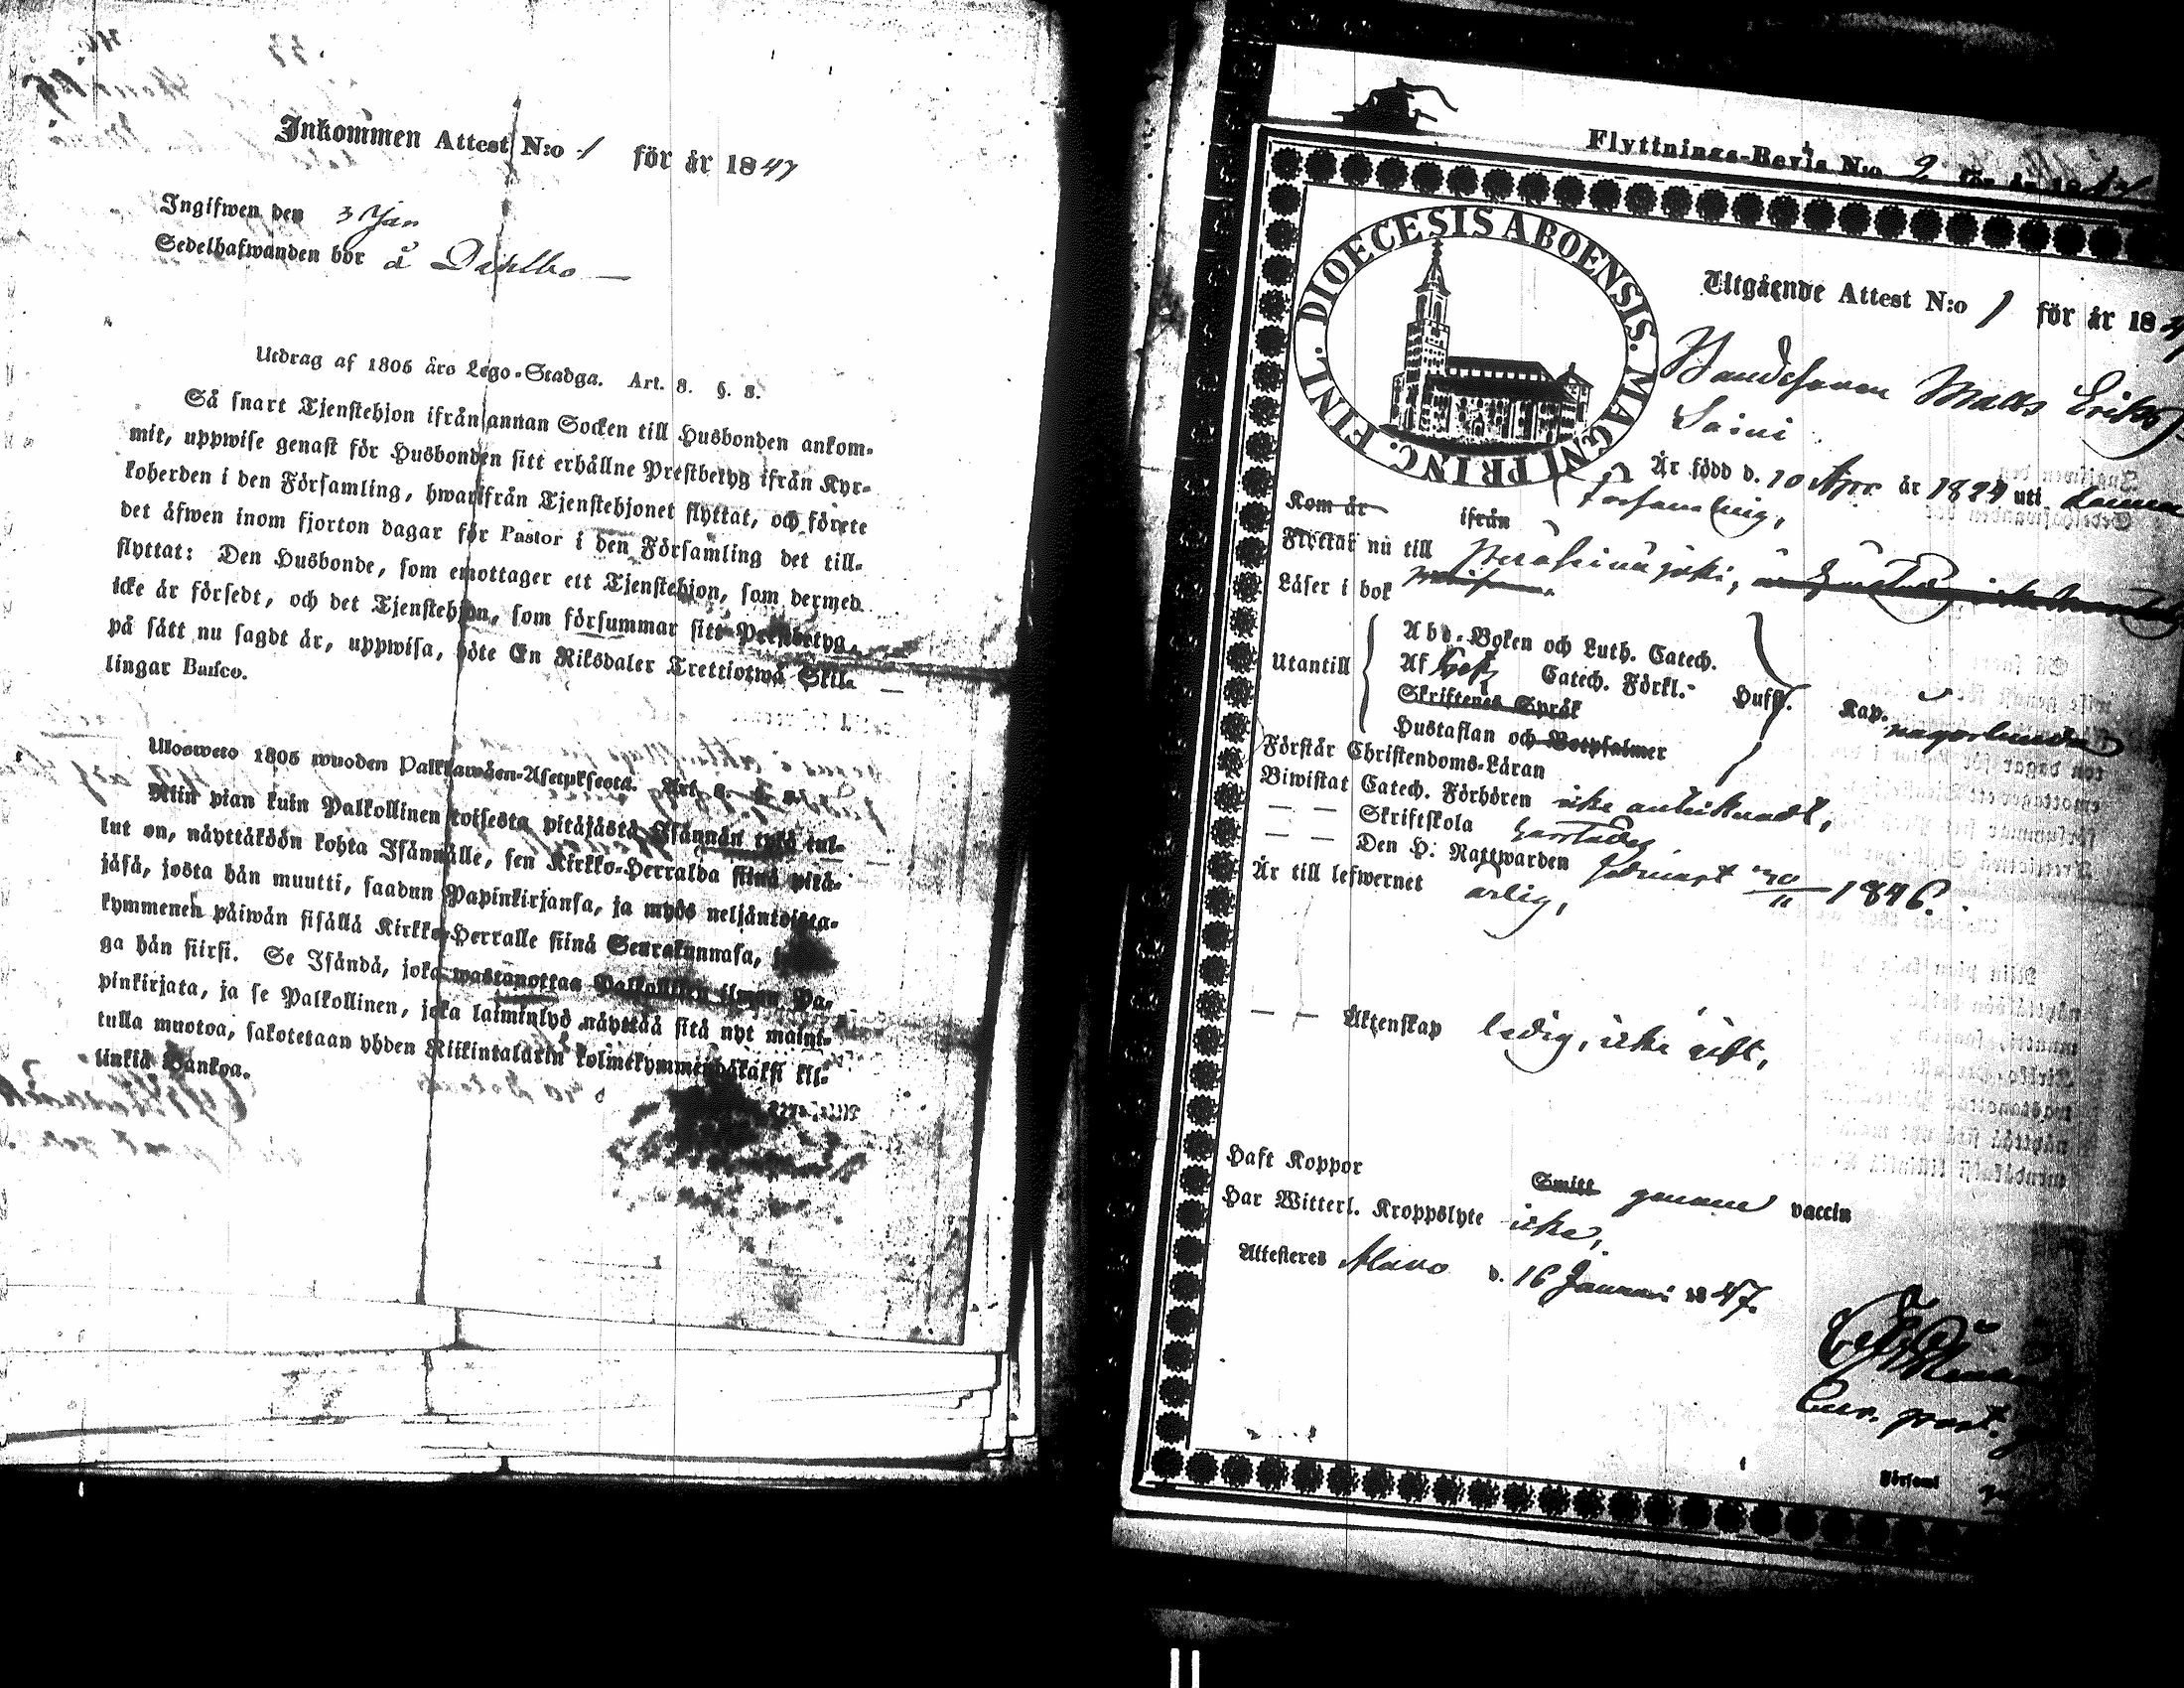 Inkommen Attest N:o 1 för år 1847
Ingifwen den 3 Jan
Sedelhafwanden bor å Dahlbo
Utdrag af 1805 års Lego-Stadga. Art. 8. §. 8.
Så snart Tjenstehjon ifrån annan Socken till Husbonden ankom-
mit, uppwise genast för Husbonden sitt erhållne Prestbetyg ifrån Kyr-
koherden i den Församling, hwarifrån Tjenstehjonet flyttat, och förete
det äfwen inom fjorton dagar för Pastor i den Församling det till-
flyttat: Den Husbonde, som emottager ett Tjenstehjon, som dermed
icke är försedt, och det Tjenstehjon, som försummar sitt Prestbetyg,
på sått nu sagdt är, uppwisa, böte En Riksdaler Trettiotwå Skil-
lingar Banco.
Ulosweto 1805 wuoden Palkkawäen-Asetuksesta. Art. 8. §. 8.
Niin pian kuin Palkollinen toisesta pitäjästä Isännän tykö tul-
lut on, näyttäköön kohta Isännälle, sen Kirkko-Herralda siinä pitä-
jäsä, josta hän muutti, saadun Papinkirjansa, ja myös neljäntoista-
kymmenen päiwän sisällä Kirkko-Herralle siinä Seurakunnasa,
ga hän siirsi. Se Isändä, joka wastanottaa Palkollisen ilman Pa-
pinkirjata, ja se Palkollinen, joka laiminlyö näyttää sitä nyt mainit-
tulla muotoa, sakotetaan yhden Riikintalarin kolmekymmendäkaksi kil-
linkiä Bankoa.
Flyttnings-Bevis N:o 2 för år 18
DIOECESIS ABOENSIS. MAGNI PRINC. FINL.
Utgående Attest N:o 1 för år 184
Bondesonen Matts Eriks
Saini
Är född d. 10 Apr. år 1824 uti
Församling,
Kom år ifrån
Flyttar nu till Peräseinäjoki,
Läser i bok
Utantill
Abd-Boken och Luth. Catech.
Af Catech. Förkl. Hufst. Kap.
Skriftenes Språk
Hustaflan och Botpsalmer
Förstår Christendoms-Läran någorlunda
Biwistat Catech. Förhören icke antecknadt,
— — Skriftskola
— — Den H. Nattwarden sednast 30/11 1846.
Är till lefwernet ärlig,
— — Äktenskap ledig, icke gift,
Haft Koppor Smitt genom vaccin
Har Witterl. Kroppslyte icke,
Attesteres Alavo d. 16 Januari 1847.